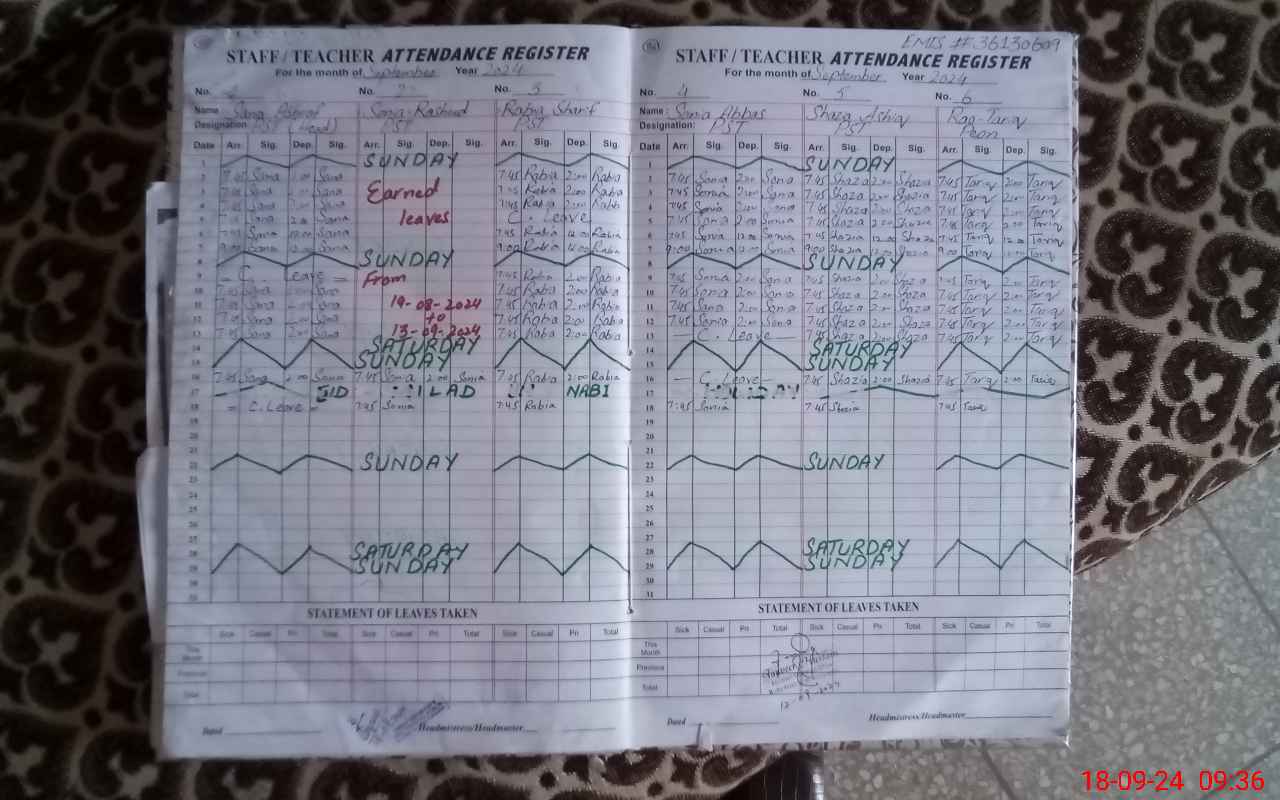 STAFF / TEACHER ATTENDANCE REGISTER
For the month of September Year 2024
No. No. No. 3
Name : Sana Ashraf Sonia Rasheed Rabia Sharif
Designation: PST (Head) PST PST
Date Arr. Sig. Dep. Sig. Arr. Sig. Dep. Sig. Arr. Sig. Dep. Sig.
1 SUNDAY
2 7:45 Sana Sana 7:45 Rabia 2:00 Rabia
3 Sana Sana Earned 7:45 Rabia 2:00 Rabia
4 Sana Sana 7:45 Rabia 2:00 Rabia
5 Sana 2:00 Sana leaves C. Leave
6 Sana 12:00 Sana 7:45 Rabia 12:00 Rabia
7 9:00 Sana 12:00 Sana 9:00 Rabia 12:00 Rabia
8 SUNDAY
9 C. Leave From 7:45 Rabia 2:00 Rabia
10 7:45 Sana 2:00 Sana 7:45 Rabia 2:00 Rabia
11 7:45 Sana 2:00 Sana 19-08-2024 7:45 Rabia 2:00 Rabia
12 7:45 Sana 2:00 Sana to 7:45 Rabia 2:00 Rabia
13 7:45 Sana 2:00 Sana 13-09-2024 7:45 Rabia 2:00 Rabia
14 SATURDAY
15 SUNDAY
16 7:45 Sana 2:00 Sana 7:45 Sonia 2:00 Sonia 7:45 Rabia 2:00 Rabia
17 EID MILAD NABI
18 C. Leave 7:45 Sonia 7:45 Rabia
19
20
21
22 SUNDAY
23
24
25
26
27
28 SATURDAY
29 SUNDAY
30
31
STATEMENT OF LEAVES TAKEN
Sick Casual Pri Total Sick Casual Pri Total Sick Casual Pri Total
This Month
Previous
Total
Dated Headmistress/Headmaster
EMIS # 36130609
STAFF / TEACHER ATTENDANCE REGISTER
For the month of September Year 2024
No. 4 No. 5 No. 6
Name : Sonia Abbas Shaza Ashiq Rao Tariq
Designation: PST PST Peon
Date Arr. Sig. Dep. Sig. Arr. Sig. Dep. Sig. Arr. Sig. Dep. Sig.
1 SUNDAY
2 7:45 Sonia 2:00 Sonia 7:45 Shaza 2:00 Shaza 7:45 Tariq 2:00 Tariq
3 7:45 Sonia 2:00 Sonia 7:45 Shaza 2:00 Shaza 7:45 Tariq 2:00 Tariq
4 7:45 Sonia 2:00 Sonia 7:45 Shaza 2:00 Shaza 7:45 Tariq 2:00 Tariq
5 7:45 Sonia 2:00 Sonia 7:45 Shaza 2:00 Shaza 7:45 Tariq 2:00 Tariq
6 7:45 Sonia 12:00 Sonia 7:45 Shazia 12:00 Shaza 7:45 Tariq 12:00 Tariq
7 9:00 Sonia 12:00 Sonia 9:00 Shazia 12:00 Shaza 9:00 Tariq 12:00 Tariq
8 SUNDAY
9 7:45 Sonia 2:00 Sonia 7:45 Shaza 2:00 Shaza 7:45 Tariq 2:00 Tariq
10 7:45 Sonia 2:00 Sonia 7:45 Shaza 2:00 Shaza 7:45 Tariq 2:00 Tariq
11 7:45 Sonia 2:00 Sonia 7:45 Shaza 2:00 Shaza 7:45 Tariq 2:00 Tariq
12 7:45 Sonia 2:00 Sonia 7:45 Shaza 2:00 Shaza 7:45 Tariq 2:00 Tariq
13 C. Leave 7:45 Shaza 2:00 Shaza 7:45 Tariq 2:00 Tariq
14 SATURDAY
15 SUNDAY
16 C. Leave 7:45 Shazia 2:00 Shazia 7:45 Tariq 2:00 Tariq
17 HOLIDAY
18 7:45 Sonia 7:45 Shazia 7:45 Tariq
19
20
21
22 SUNDAY
23
24
25
26
27
28 SATURDAY
29 SUNDAY
30
31
STATEMENT OF LEAVES TAKEN
Sick Casual Pri Total Sick Casual Pri Total Sick Casual Pri Total
This Month
Previous
Total
Dated Headmistress/Headmaster
18-09-24 09:36